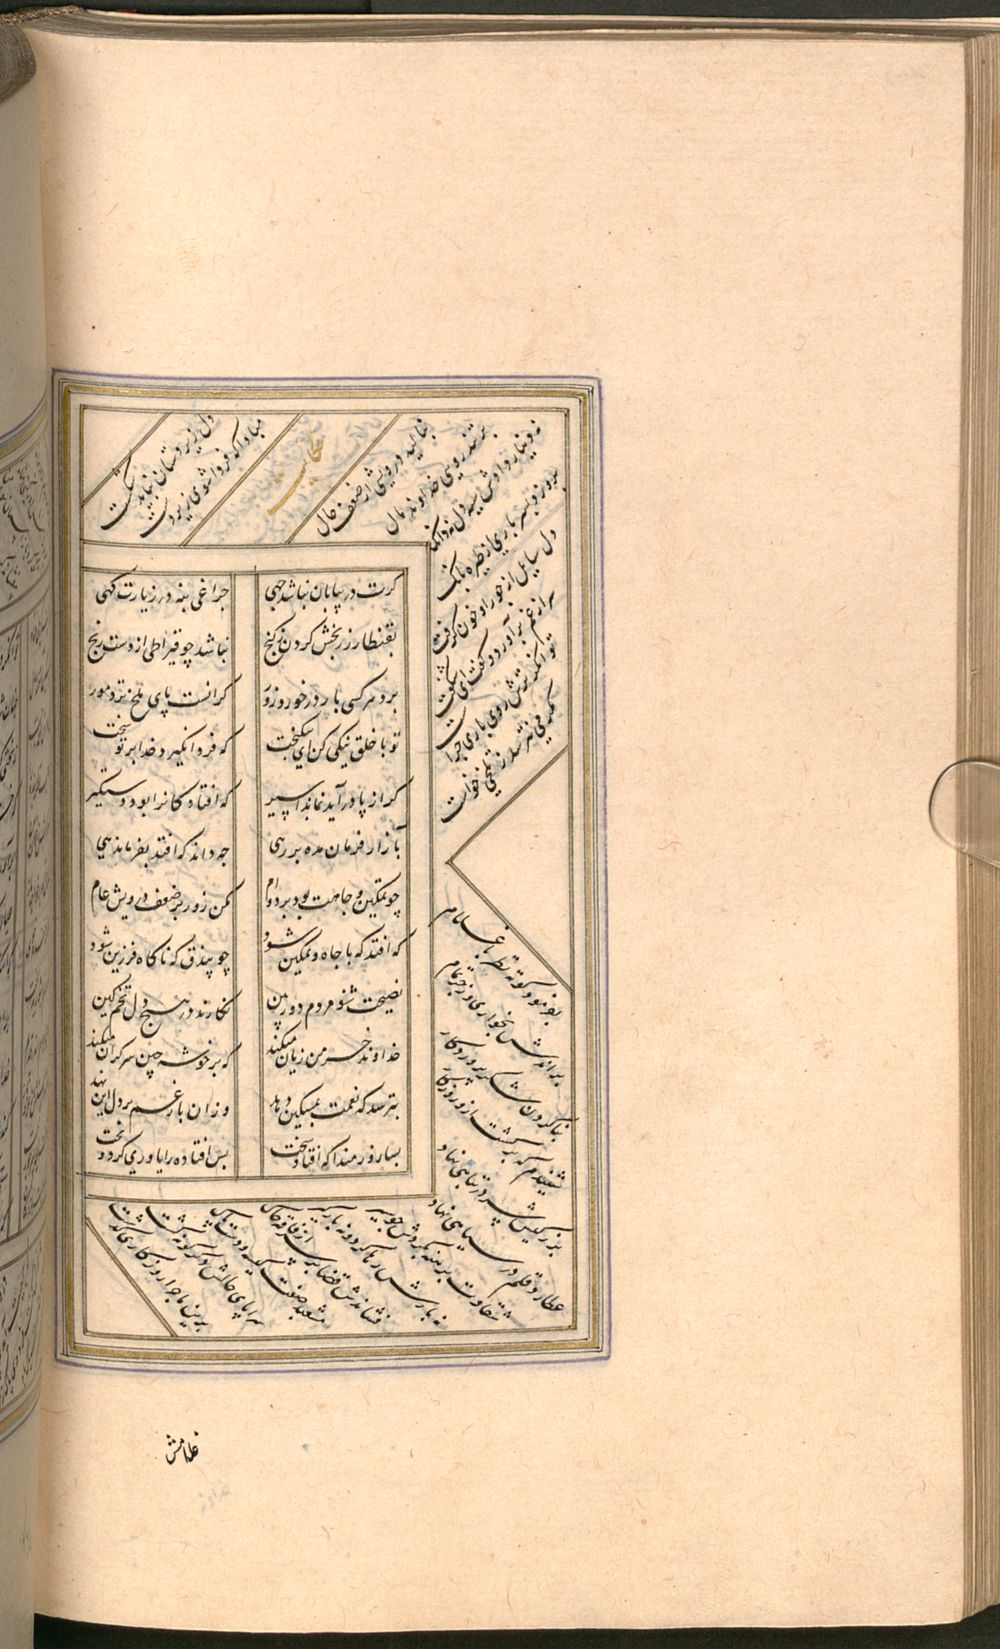 گرت در بیابان نباشد چهی چراغی بنه در زیارت گهی
بقنطار زر بخش کردن ز گنج نباشد چو قیراطی از دست رنج
برد هر کسی بار در خورد زور گرانست پای ملخ نزد مور
تو با خلق نیکی کن ای نیکبخت که فردا نگیرد خدا بر تو سخت
گر از پا درآید نماند اسیر که افتادگانرا بود دستگیر
بآزار فرمان مده بر رهی چه داند که افتد بفرماندهی
چو تمکین و جاهت بود بر دوام مکن زور بر ضعف درویش عام
که افتد که با جاه و تمکین شود چو بیذق که ناگاه فرزین شود
نصیحت شنو مردم دوربین نکارند در هیچ دل تخم کین
خداوند خرمن زیان میکند که بر خوشه چین سرگران میکند
بترسد که نعمت بمسکین دهند وزان بار غم بر دل این نهند
بسا زورمندا که افتاد سخت بس افتاده را یاوری کرد بخت
دل زیردستان نباید شکست
مبادا که فردا شوی زیردست
حکایت
بنالید درویشی از ضعف حال
بر تندرویی خداوند مال
نه دینار دادش سیه دل نه دانگ
برو زد بسر باری از طیره بانگ
دل سایل از جور او خون گرفت
سر از غم برآورد و گفت ای شگفت
توانگر ترش روی باری چراست
مگر می نترسد ز تلخی خواست
بفرمود کوته نظر تا غلام
براندش بخواری و زجر تمام
بناکردن شکر پروردگار
شنیدم که برگشت ازو روزگار
بزرگیش سر در تباهی نهاد
عطارد قلم در سیاهی نهاد
شقاوت برهنه
نه بارش رها کرد و نه بارگیر
فشاندش قضا بر سر از فاقه خاک
مشعبد صفت کیسه و دست پاک
سراپای حالش دگرگونه گشت
برین ماجرا روزگاری گذشت
غلامش